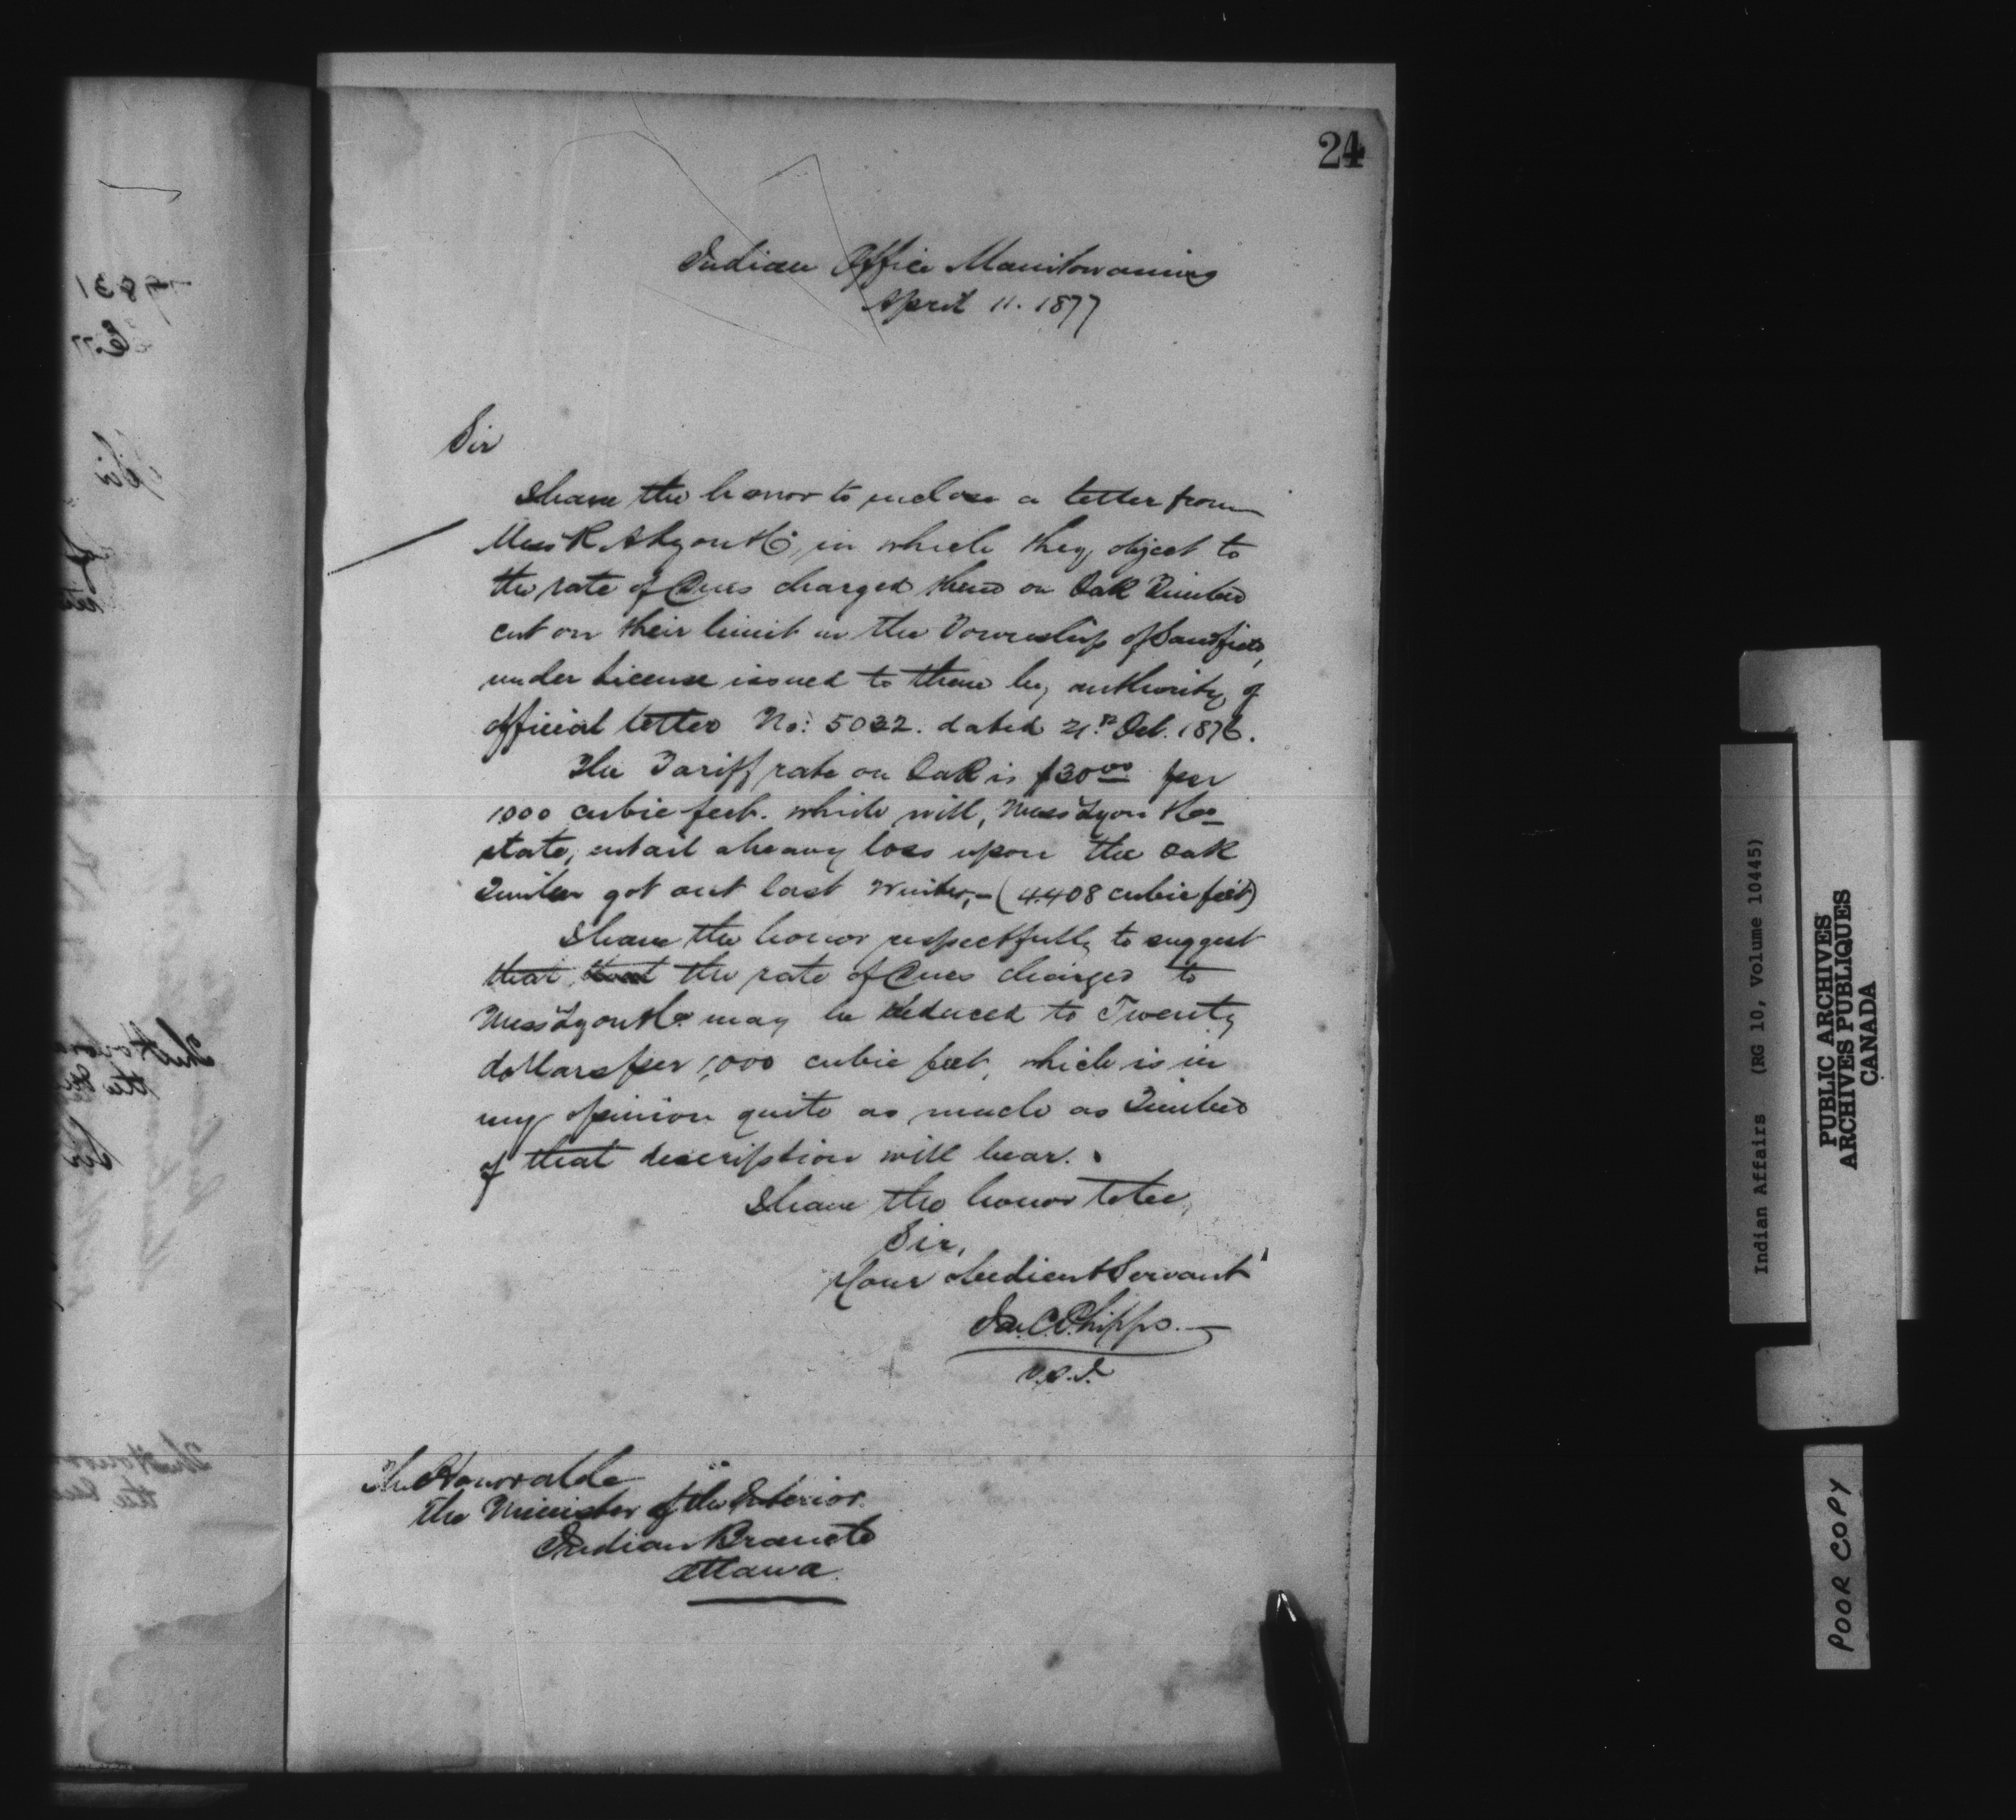 24
Indian Office Manitowaning
April 11. 1877
Sir
I have the honor to enclose a letter from
Mess R. A. Lyon & Co, in which they object to
the rate of Dues charged them on Oak Timber
cut on their limit in the Township of Sandfield,
under License issued to them by authority of
official letter No: 5022. dated 21st Oct. 1876.
The Tariff rate on Oak is $30.00 per
1000 cubic feet. which will, Mess Lyon & Co
state, entail a heavy loss upon the Oak
Timber got out last Winter, - (4.408 cubic feet)
I have the honor respectfully to suggest
that that the rate of Dues charged to
Mess Lyon & Co may be reduced to Twenty
dollars per 1,000 cubic feet, which is in
my opinion quite as much as Timber
of that description will bear.
I have the honor to be,
Sir,
Your obedient Servant
Jas. C. Phipps.
V.S.I.
The Honorable
The Minister of the Interior
Indian Branch
Ottawa.
Indian Affairs (RG 10, Volume 10445)
PUBLIC ARCHIVES
ARCHIVES PUBLIQUES
CANADA
POOR COPY